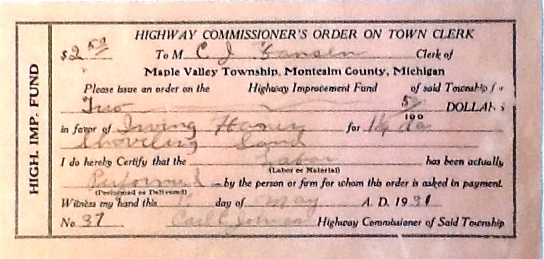 HIGHWAY COMMISSIONER'S ORDER ON TOWN CLERK
$2 50 To M C J Hansen Clerk of
Maple Valley Township, Montcalm County, Michigan
Please issue an order on the Highway Improvement Fund of said Township for
Two 50/100 DOLLARS
in favor of Irving for da
Shoveling Sand
I do hereby Certify that the Labor has been actually
(Labor or Material)
Performed — by the person or firm for whom this order is asked in payment.
(Performed or Delivered)
Witness my hand this day of May A. D. 1931
No 37 Carl C Johnson Highway Commissioner of Said Township
HIGH. IMP. FUND